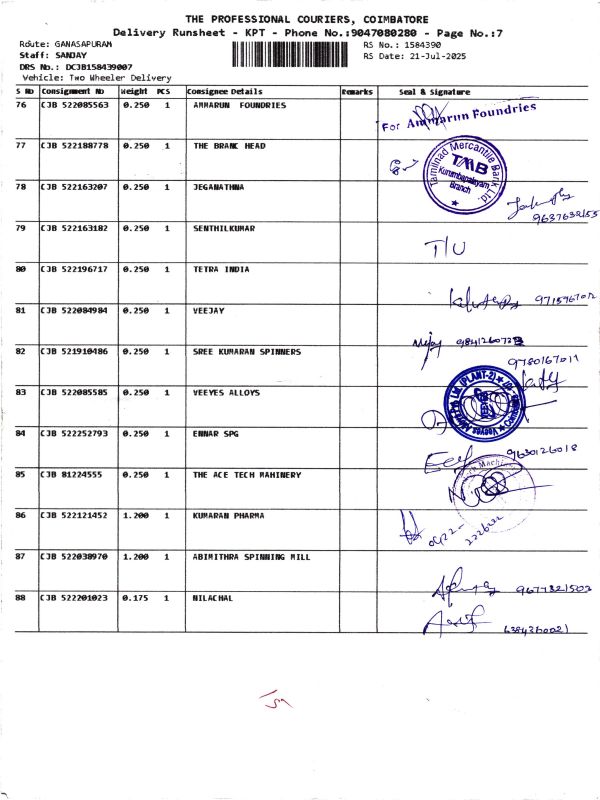 THE PROFESSIONAL COURIERS, COIMBATORE
Delivery Runsheet - KPT - Phone No.:9047080280 - Page No.:7
Route: GANASAPURAM
RS No.: 1584390
Staff: SANJAY
RS Date: 21-Jul-2025
DRS No.: DCJB158439007
Vehicle: Two Wheeler Delivery
S No Consignment No Weight PCS Consignee Details Remarks Seal & Signature
76 CJB 522085563 0.250 1 AMMARUN FOUNDRIES
For Ammarun Foundries
77 CJB 522188778 0.250 1 THE BRANC HEAD
Tamilnad Mercantile Bank Ltd.
TMB
Kurumbapalayam
Branch
78 CJB 522163207 0.250 1 JEGANATHNA
9637632155
79 CJB 522163182 0.250 1 SENTHILKUMAR
T/U
80 CJB 522196717 0.250 1 TETRA INDIA
81 CJB 522084984 0.250 1 VEEJAY
82 CJB 521910486 0.250 1 SREE KUMARAN SPINNERS
9780167011
83 CJB 522085585 0.250 1 VEEYES ALLOYS
(PLANT-2)
84 CJB 522252793 0.250 1 ENNAR SPG
9630126018
85 CJB 81224555 0.250 1 THE ACE TECH MAHINERY
86 CJB 522121452 1.200 1 KUMARAN PHARMA
0422-
87 CJB 522038970 1.200 1 ABIMITHRA SPINNING MILL
9677321502
88 CJB 522201023 0.175 1 NILACHAL